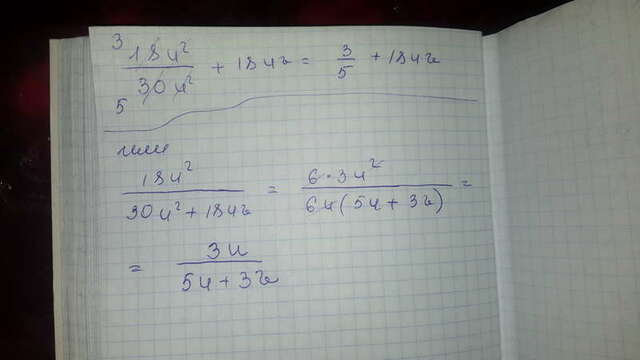 3 18u² / 30u² 5 + 18uz = 3/5 + 18uz
или
18u² / 30u² + 18uz = 6·3u² / 6u(5u + 3z) =
= 3u / 5u + 3z